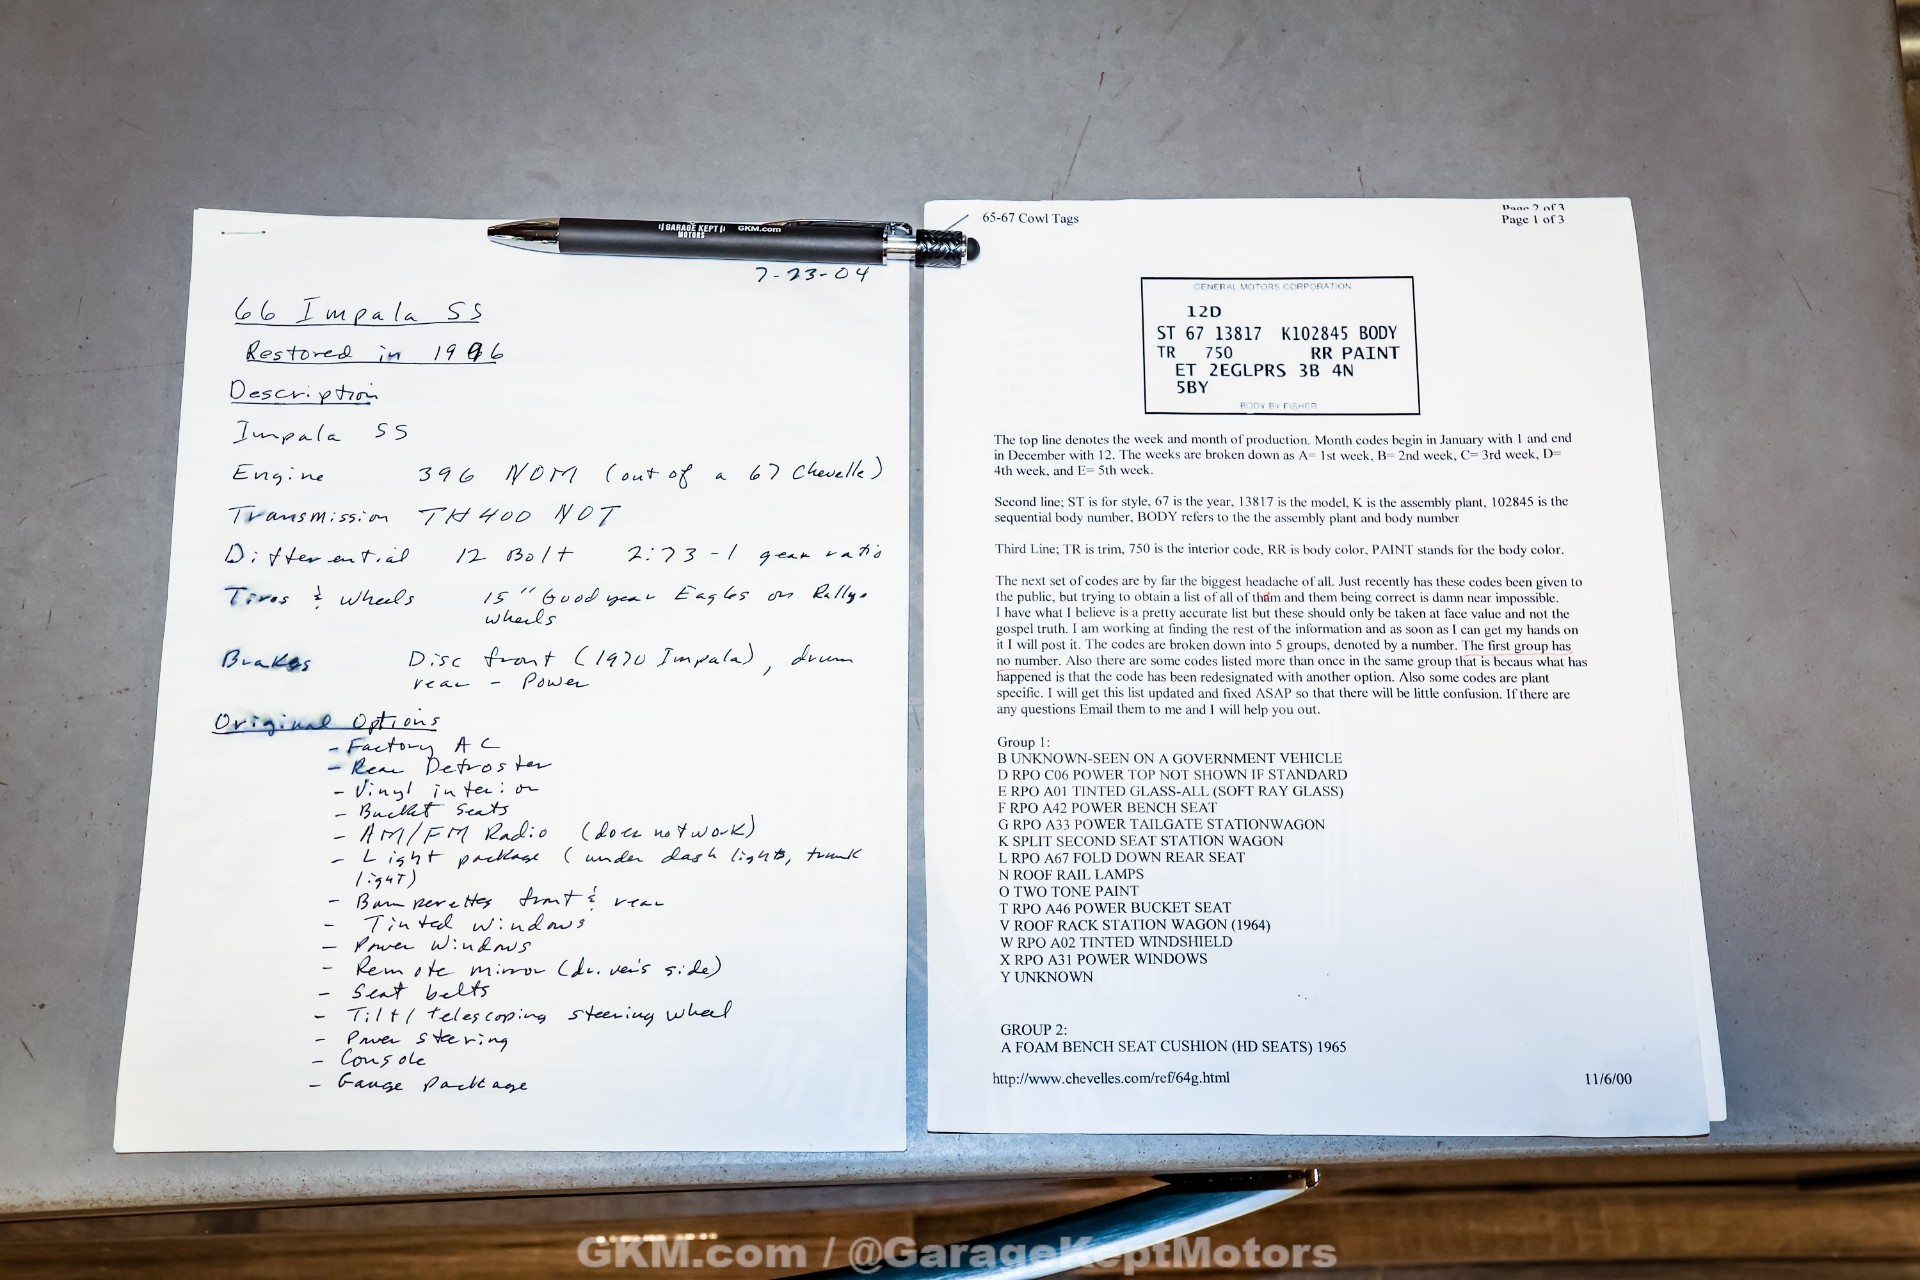 GARAGE KEPT MOTORS GKM.com
7-23-04
66 Impala SS
Restored in 1996
Description
Impala SS
Engine 396 NOM (out of a 67 Chevelle)
Transmission TH400 NOT
Differential 12 Bolt 2:73-1 gear ratio
Tires & Wheels 15" Goodyear Eagles on Rallye
wheels
Brakes Disc front (1970 Impala), drum
rear - Power
Original Options
- Factory AC
- Rear Defroster
- Vinyl interior
- Bucket Seats
- AM/FM Radio (does not work)
- Light package (under dash lights, trunk
light)
- Bumperettes front & rear
- Tinted windows
- Power Windows
- Remote mirror (driver's side)
- Seat belts
- Tilt/telescoping steering wheel
- Power steering
- Console
- Gauge Package
Page 2 of 3
65-67 Cowl Tags Page 1 of 3
GENERAL MOTORS CORPORATION
12D
ST 67 13817 K102845 BODY
TR 750 RR PAINT
ET 2EGLPRS 3B 4N
5BY
BODY BY FISHER
The top line denotes the week and month of production. Month codes begin in January with 1 and end
in December with 12. The weeks are broken down as A= 1st week, B= 2nd week, C= 3rd week, D=
4th week, and E= 5th week.
Second line; ST is for style, 67 is the year, 13817 is the model, K is the assembly plant, 102845 is the
sequential body number, BODY refers to the the assembly plant and body number
Third Line; TR is trim, 750 is the interior code, RR is body color, PAINT stands for the body color.
The next set of codes are by far the biggest headache of all. Just recently has these codes been given to
the public, but trying to obtain a list of all of tham and them being correct is damn near impossible.
I have what I believe is a pretty accurate list but these should only be taken at face value and not the
gospel truth. I am working at finding the rest of the information and as soon as I can get my hands on
it I will post it. The codes are broken down into 5 groups, denoted by a number. The first group has
no number. Also there are some codes listed more than once in the same group that is becaus what has
happened is that the code has been redesignated with another option. Also some codes are plant
specific. I will get this list updated and fixed ASAP so that there will be little confusion. If there are
any questions Email them to me and I will help you out.
Group 1:
B UNKNOWN-SEEN ON A GOVERNMENT VEHICLE
D RPO C06 POWER TOP NOT SHOWN IF STANDARD
E RPO A01 TINTED GLASS-ALL (SOFT RAY GLASS)
F RPO A42 POWER BENCH SEAT
G RPO A33 POWER TAILGATE STATIONWAGON
K SPLIT SECOND SEAT STATION WAGON
L RPO A67 FOLD DOWN REAR SEAT
N ROOF RAIL LAMPS
O TWO TONE PAINT
T RPO A46 POWER BUCKET SEAT
V ROOF RACK STATION WAGON (1964)
W RPO A02 TINTED WINDSHIELD
X RPO A31 POWER WINDOWS
Y UNKNOWN
GROUP 2:
A FOAM BENCH SEAT CUSHION (HD SEATS) 1965
http://www.chevelles.com/ref/64g.html 11/6/00
GKM.com / @GarageKeptMotors